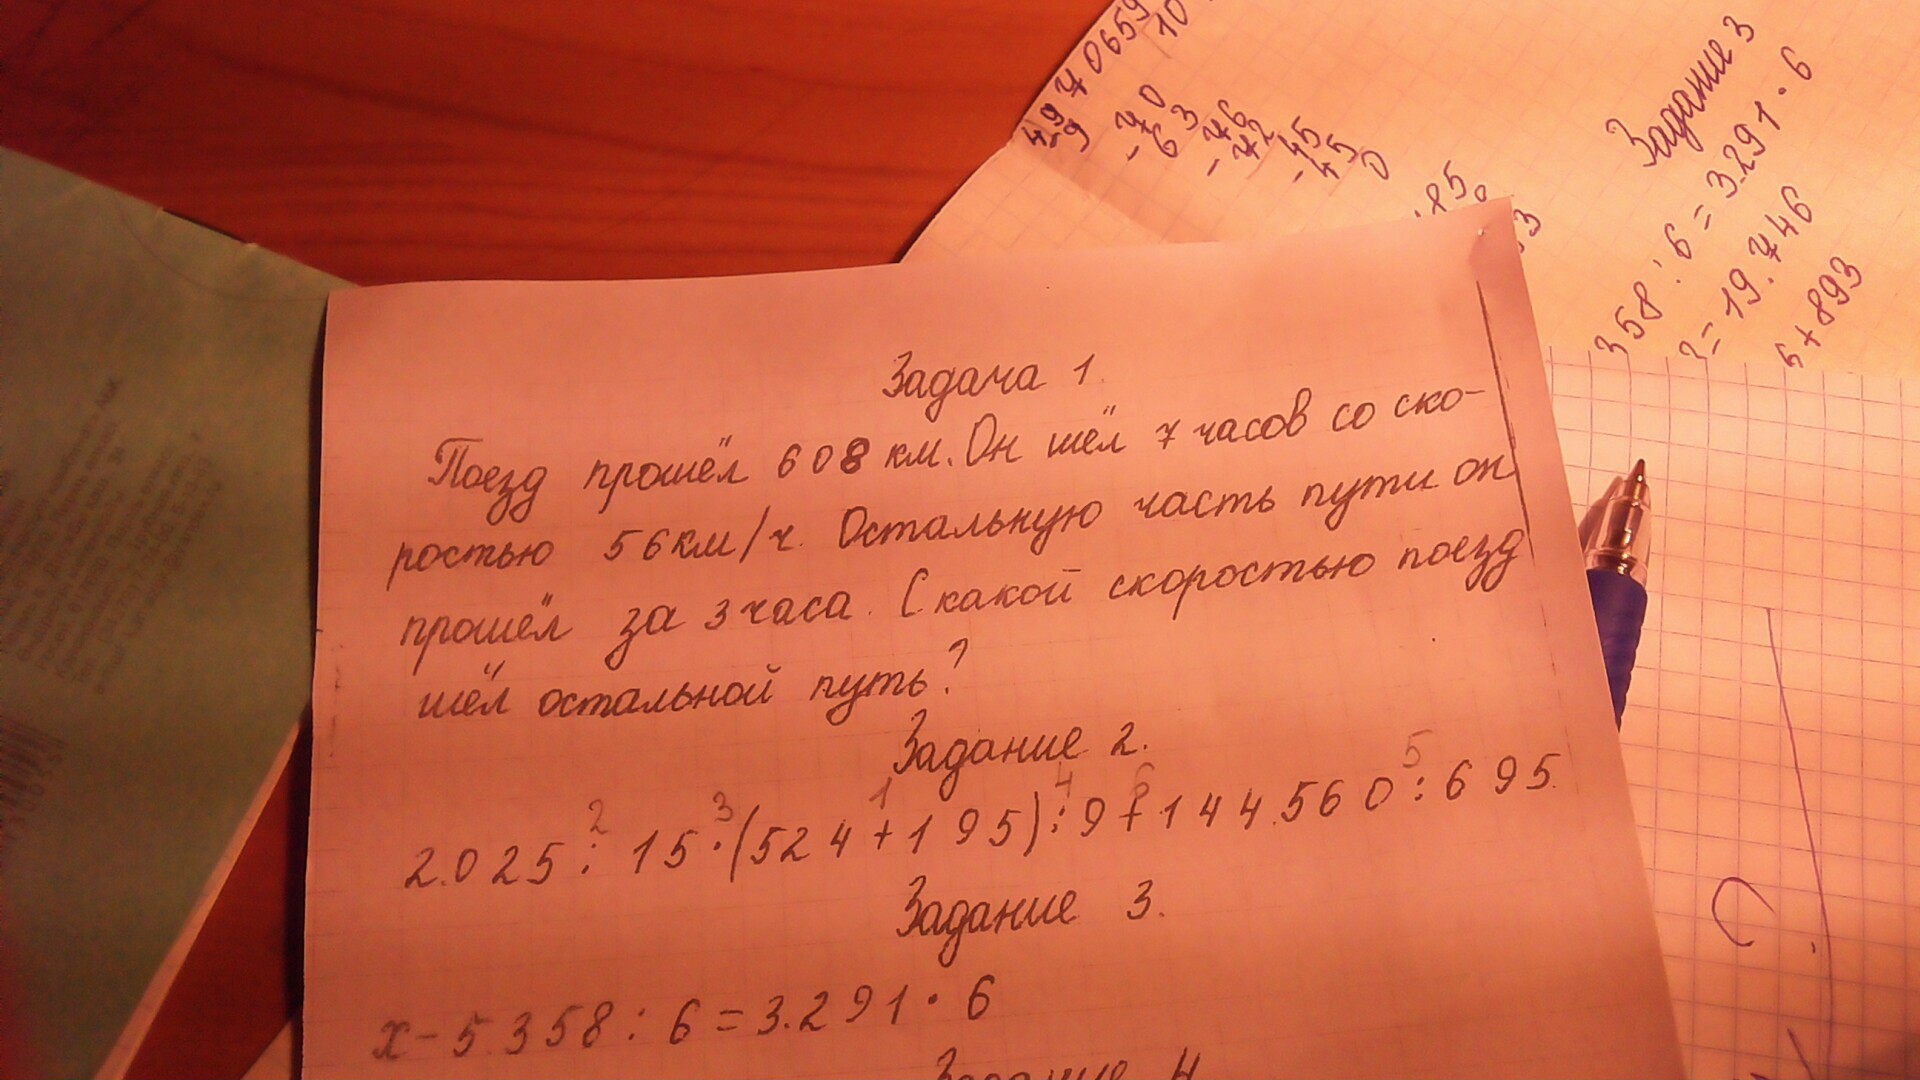 Задача 1.
Поезд прошёл 608 км. Он шёл 7 часов со ско-
ростью 56 км/ч. Остальную часть пути он
прошёл за 3 часа. С какой скоростью поезд
шёл остальной путь?
Задание 2.
2 3 1 4 6 5
2.025 : 15 · (524 + 195) : 9 + 144.560 : 695.
Задание 3.
x - 5.358 : 6 = 3.291 · 6
Задание 4
Задание 3
358 : 6 = 3.291 · 6
= 19.746
+ 893
70
63
76
72
45
45
0
85